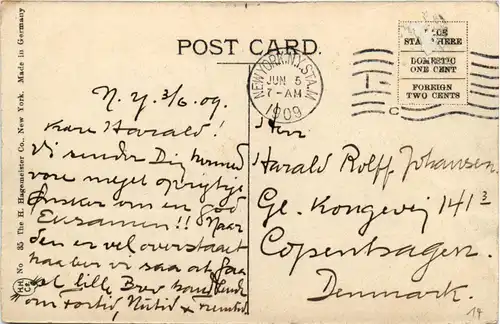 POST CARD.
PLACE
STAMP HERE
DOMESTIC
ONE CENT
FOREIGN
TWO CENTS
NEW YORK, N.Y. STA. M
JUN 5
7-AM
1909
C
No 35 The H. Hagemeister Co., New York. Made in Germany
N.Y. 3/6. 09.
Kære Harald!
Vi sender Dig herved
vore meget oprigtige
Ønsker om en god
Examen!! Naar
den er vel overstaaet
haaber vi saa at faa
et lille Brev
om Fortid, Nutid & Fremtid
Herr
Harald Rolff Johansen.
Gl. Kongevej 141 3
Copenhagen.
Denmark.
14